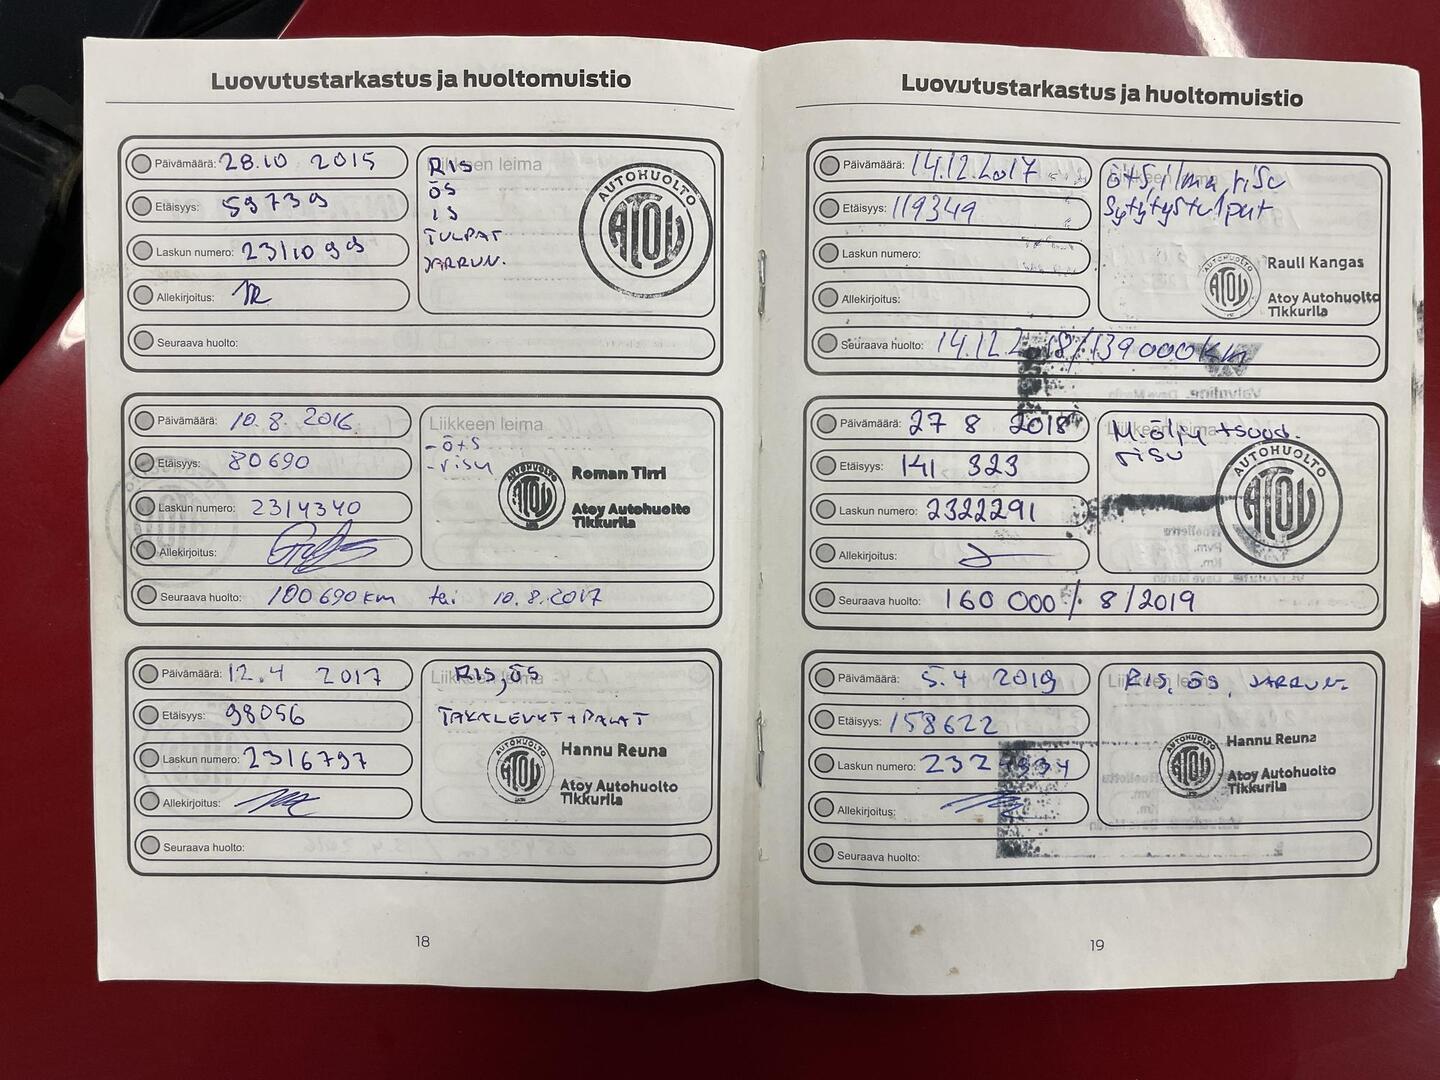 Luovutustarkastus ja huoltomuistio
Päivämäärä: 28.10 2015
Etäisyys: 59739
Laskun numero: 2311099
Allekirjoitus:
Seuraava huolto:
Liikkeen leima
RIS
ÖS
IS
TULPAT
JARRUN.
AUTOHUOLTO
ATOY
Päivämäärä: 10.8. 2016
Etäisyys: 80690
Laskun numero: 2314340
Allekirjoitus:
Seuraava huolto: 100690 km tai 10.8.2017
Liikkeen leima
- ö+s
- risu
AUTOHUOLTO
ATOY
Roman Tirri
Atoy Autohuolto
Tikkurila
Päivämäärä: 12.4 2017
Etäisyys: 98056
Laskun numero: 2316797
Allekirjoitus:
Seuraava huolto:
Liikkeen leima
RIS, ÖS
TAKALEVYT + PALAT
AUTOHUOLTO
ATOY
Hannu Reuna
Atoy Autohuolto
Tikkurila
18
Luovutustarkastus ja huoltomuistio
Päivämäärä: 14.12.2017
Etäisyys: 119349
Laskun numero:
Allekirjoitus:
Seuraava huolto: 14.12.2018/139000 km
ö+s, ilma, risu
Sytytystulpat
AUTOHUOLTO
ATOY
Rauli Kangas
Atoy Autohuolto
Tikkurila
Päivämäärä: 27 8 2018
Etäisyys: 141 323
Laskun numero: 2322291
Allekirjoitus:
Seuraava huolto: 160 000 /. 8/2019
Liikkeen leima
M.öljy + suod.
risu
AUTOHUOLTO
ATOY
Päivämäärä: 5.4 2019
Etäisyys: 158622
Laskun numero:
Allekirjoitus:
Seuraava huolto:
Liikkeen leima
RIS, ÖS, JARRUN.
AUTOHUOLTO
ATOY
Hannu Reuna
Atoy Autohuolto
Tikkurila
19